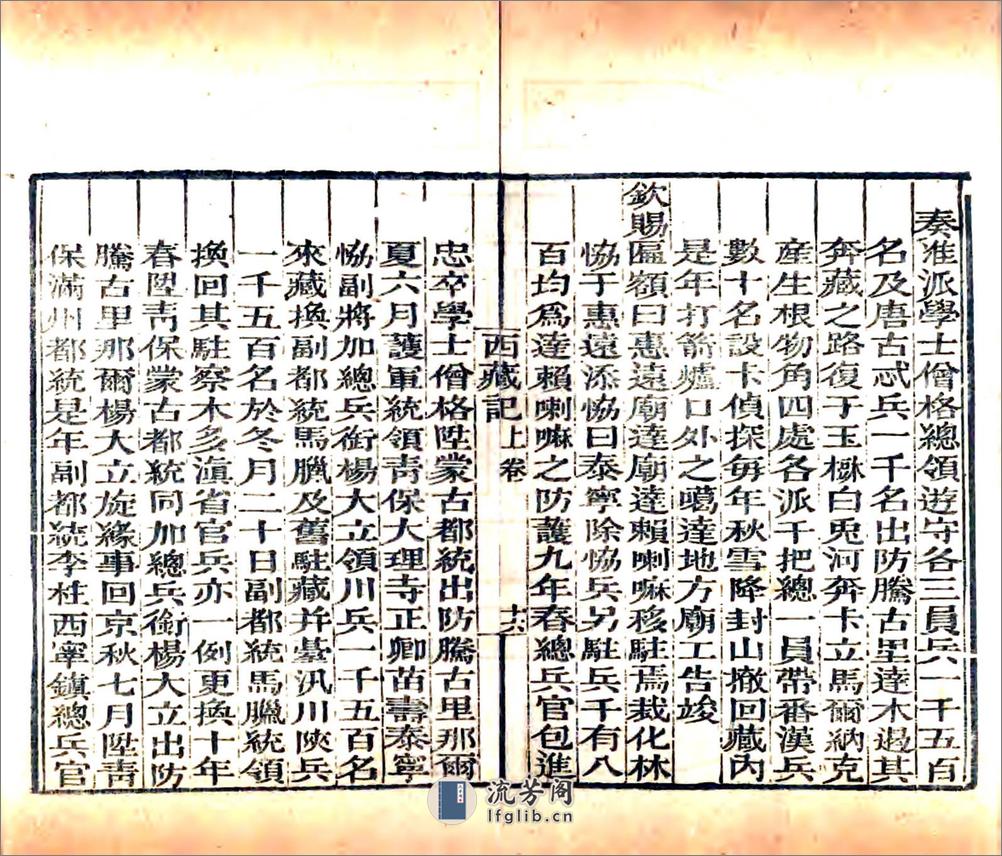 奏准派學士僧格總領遊守各三員兵一千五百
名及唐古忒兵一千名出防騰古里達木遏其
奔藏之路復于玉樹白兎河奔卡立馬爾納克
產生根物角四處各派千把總一員帶番漢兵
數十名設卡偵探每年秋雪降封山撤回藏內
是年打箭爐口外之噶達地方廟工告竣
欽賜匾額曰惠遠廟達廟達賴喇嘛移駐焉裁化林
協于惠遠添協曰泰寧除協兵另駐兵千有八
百均爲達賴喇嘛之防護九年春總兵官包進
西藏記 上卷 十六
忠卒學士僧格陞蒙古都統出防騰古里那爾
夏六月護軍統領青保大理寺正卿苗壽泰寧
協副將加總兵銜楊大立領川兵一千五百名
來藏換副都統馬臘及舊駐藏并臺汛川陝兵
一千五百名於冬月二十日副都統馬臘統領
換回其駐察木多滇省官兵亦一例更換十年
春陞青保蒙古都統同加總兵銜楊大立出防
騰古里那爾楊大立旋緣事回京秋七月陞青
保滿州都統是年副都統李柱西寧鎮總兵官
流芳阁
lfglib.cn